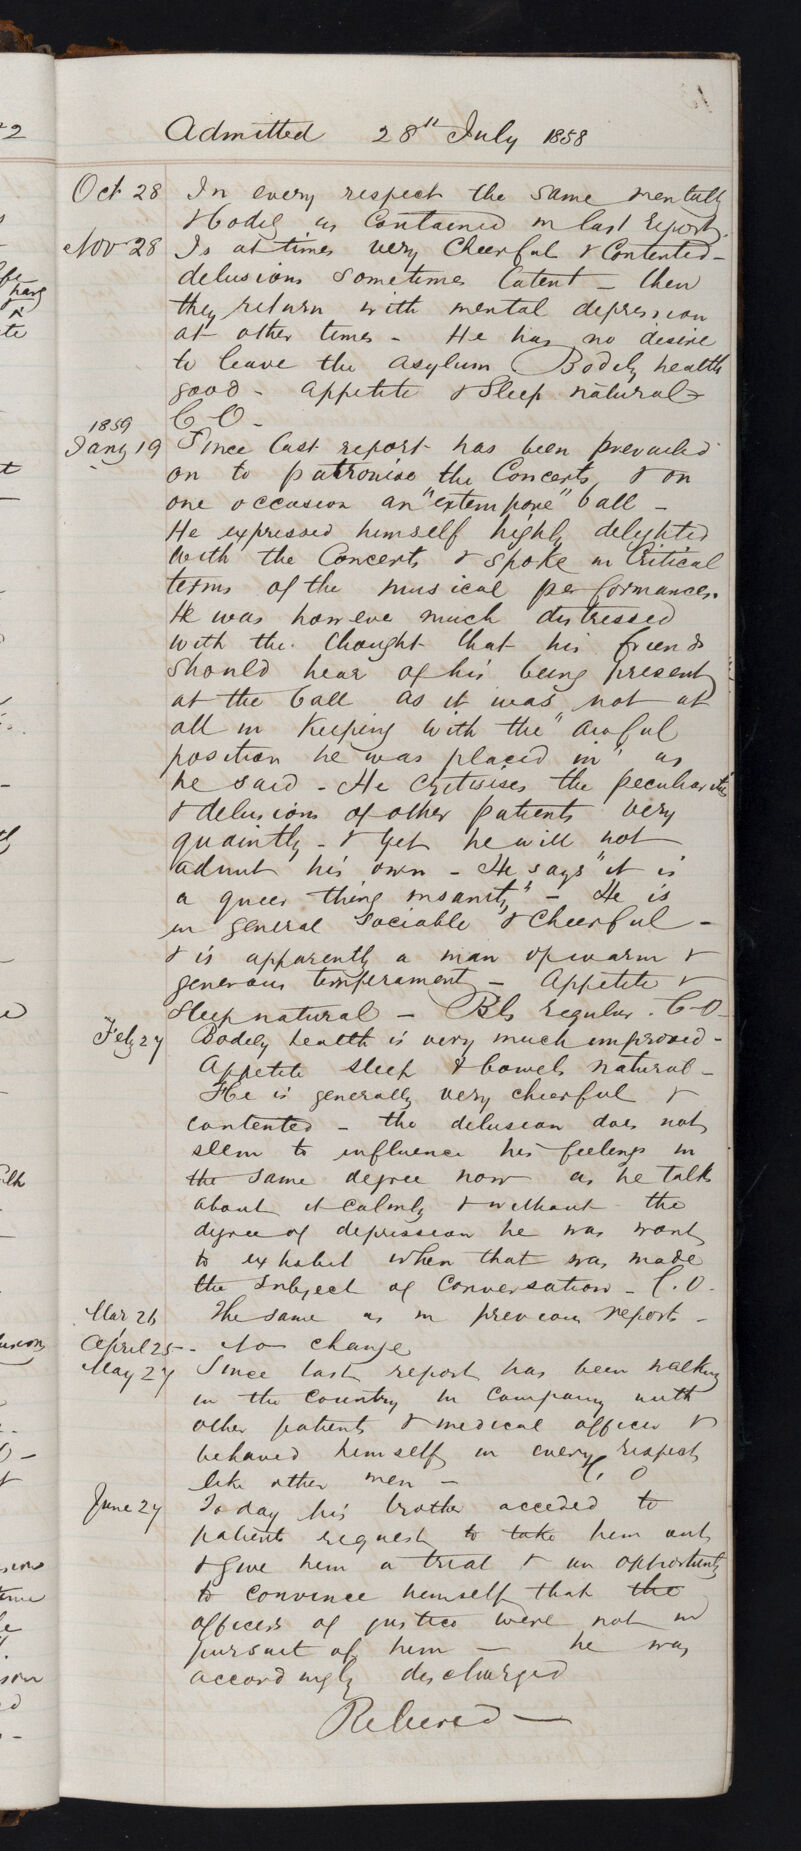 Admitted 28th July 1858
Oct 28 In every respect the same mentally
& bodily as contained in last report.
Nov 28 Is at times very cheerful & contented -
delusions sometimes latent - then
they return with mental depression
at other times - He has no desire
to leave the asylum Bodily health
good - appetite & sleep natural -
C O -
1859
Jany 19 Since last report has been prevailed
on to patronise the Concerts, & on
one occasion an "extempore" ball -
He expressed himself highly delighted
with the Concerts & spoke in Critical
terms of the musical performances.
He was howeve much distressed
with the thought that his friends
should hear of his being present
at the ball as it was not at
all in keeping with the "awful
position he was placed in" as
he said - He critisises the peculiarities
& delusions of other patients very
quaintly - & yet he will not
admit his own - He says "it is
a queer thing insanity" - He is
in general sociable & cheerful -
& is apparently a man of warm &
generous temperament - Appetite &
sleep natural - Bls regular. C O -
Feby 27 Bodily health is very much improved -
Appetite sleep & bowels natural -
He is generally very cheerful &
contented - the delusion does not
seem to influence his feelings in
the same degree now as he talks
about it calmly & without the
degree of depression he was wont
to exhibit when that was made
the subject of conversation - C. O.
Mar 26 The same as in previous report -
April 25 - No change
May 27 Since last report has been walking
in the country in company with
other patients & medical officer &
behaved himself in every respect
like other men - C. O
June 27 Today his brother acceded to
patients request to take him out
& give him a trial & an opportunity
to convince himself that the
officers of justice were not in
pursuit of him - he was
accordingly discharged
Relieved -